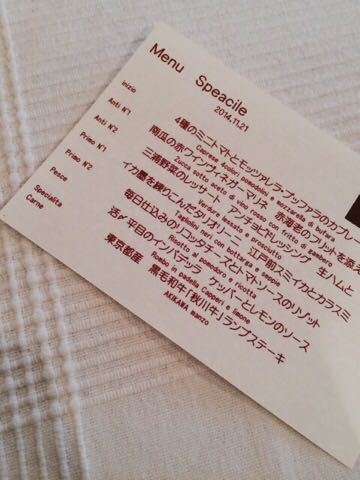 Menu Speacile
2014.11.21
Inizio
4種のミートマトとモッツァレラブッファラのカプレ
Caprese 4colori pomodoro e mozzarella di bufara
Anti N°1
南瓜の赤ワインヴィネガーマリネ 赤海老のフリットを添え
Zucca sotto aceto di vino rosso con fritto di gambero
Anti N°2
三浦野菜のレッサート アンチョビドレッシング 生ハムと
Verdure lessate e prosciutto
Primo N°1
イカ墨を練りこんだタリオリーニ 江戸前スミイカとカラスミ
Taglioni neri con bottarga e seppie
Primo N°2
毎日仕込みのリコッタチーズとトマトソースのリゾット
Risotto al pomodoro e ricotta
Pesce
活〆平目のインパデッラ ケッパーとレモンのソース
Rombo in padella Capperi e limone
Specialita
Carne
東京都産 黒毛和牛「秋川牛」ランプステーキ
AKIKAWA manzo